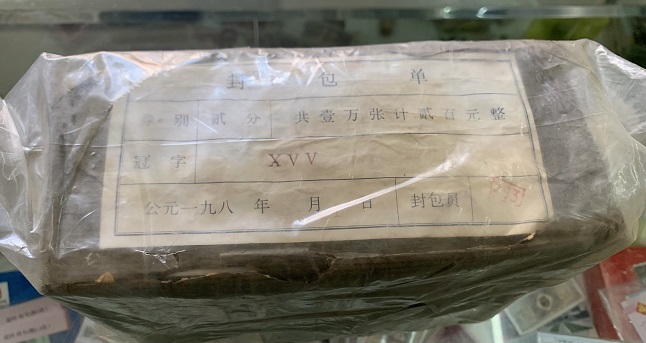 封包单
券别 贰分 共壹万张计贰百元整
冠字 XVV
公元一九八 年 月 日 封包员